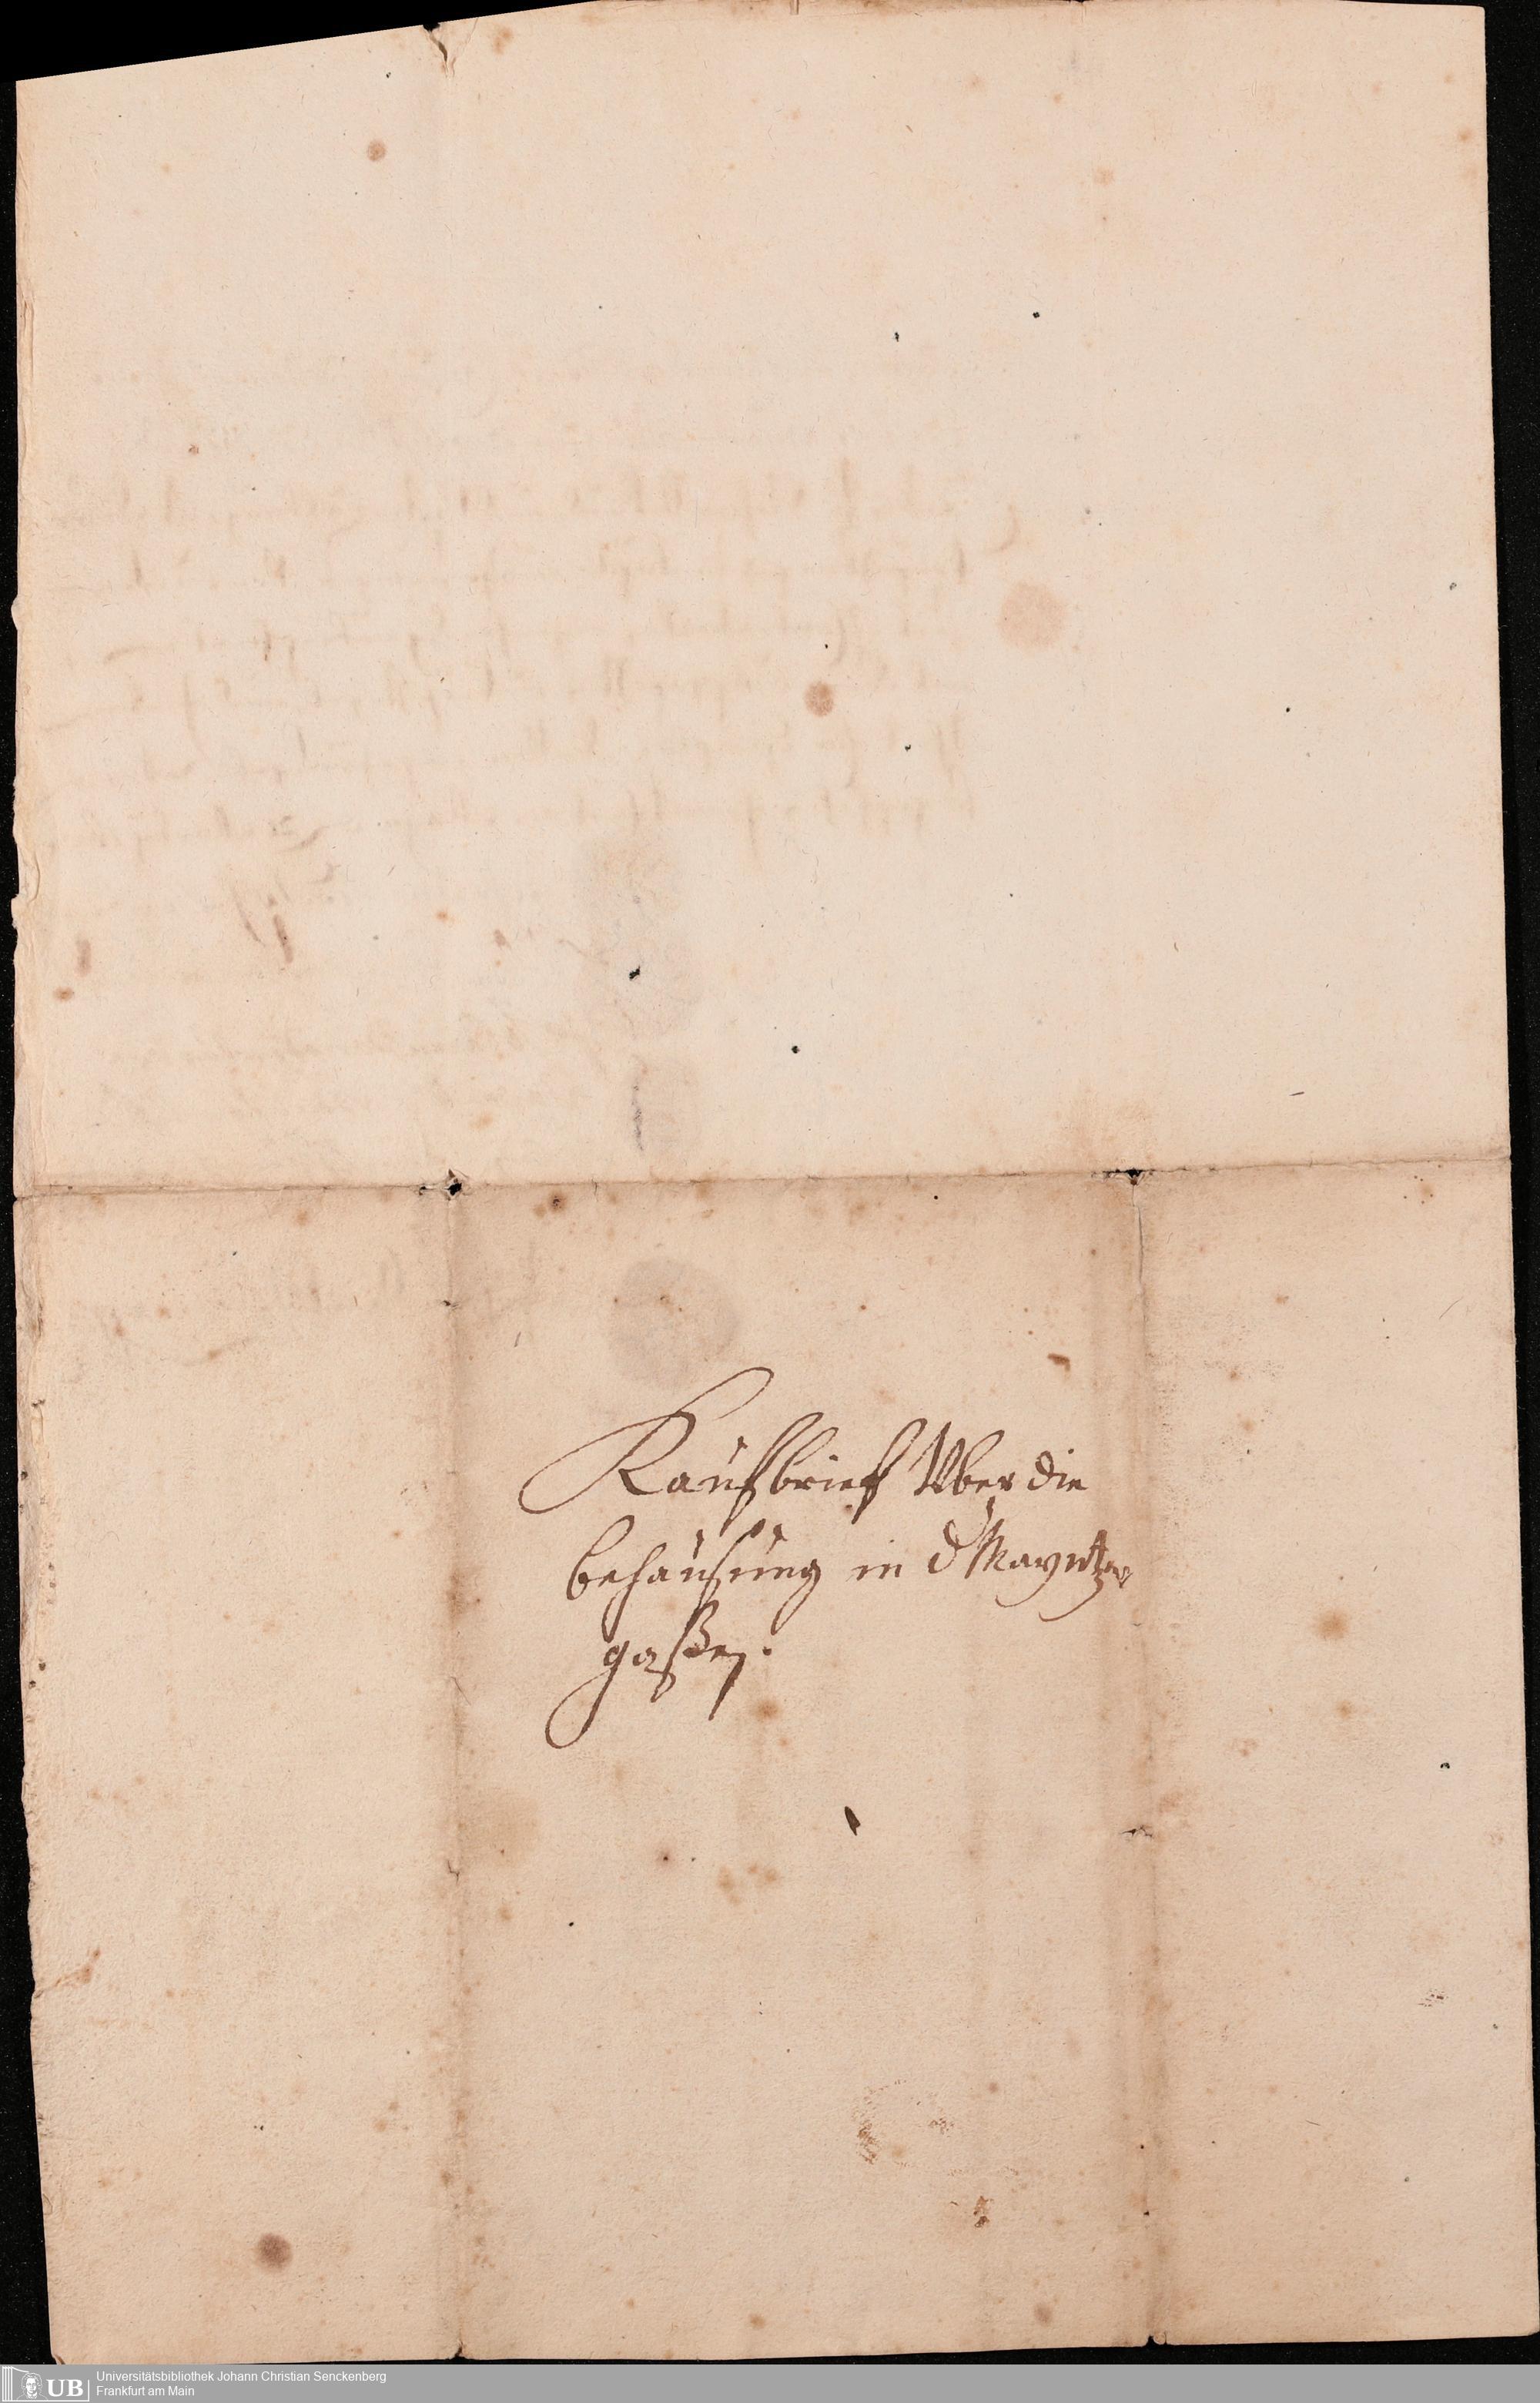 Kaufbrief Uber die
behausung in d Mayntzer
gaßen.
Universitätsbibliothek Johann Christian Senckenberg
Frankfurt am Main
UB